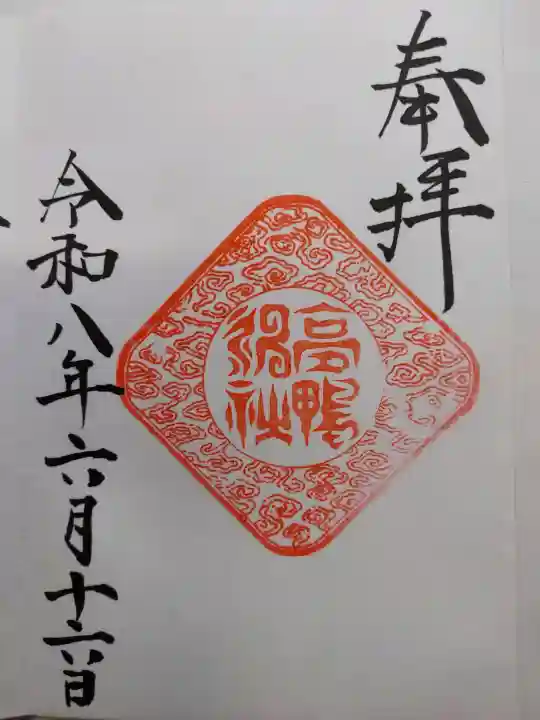 奉拝
高鴨
神社
令和八年六月十六日